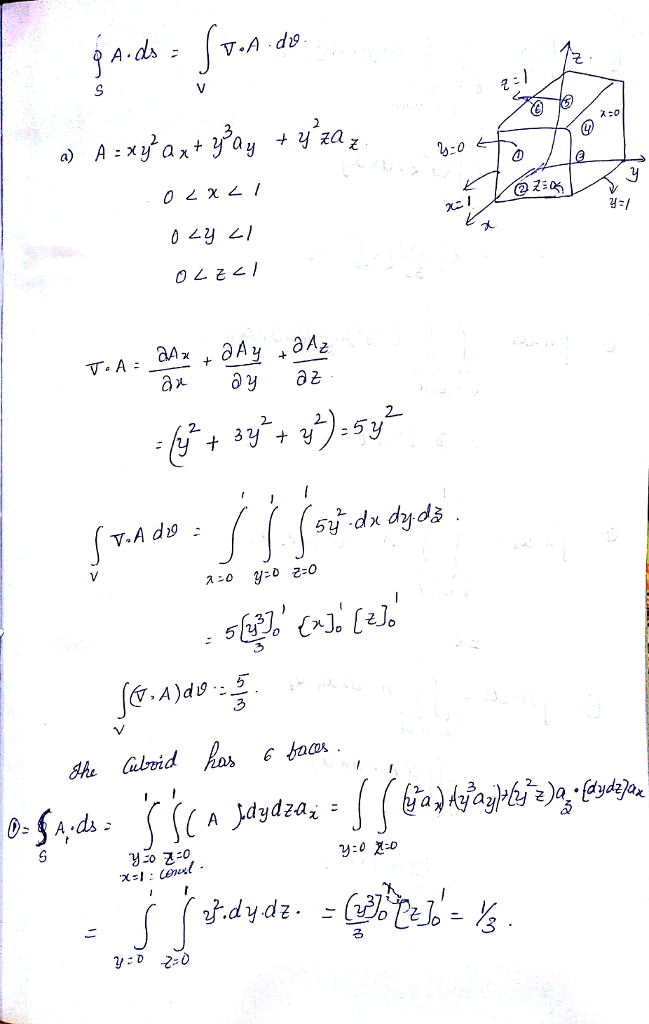 ∮_S A.ds = ∫_V ∇.A.dv.
z
z=1
⑥ ⑤ x=0
④
a) A = xy² ax + y³ ay + y² z az
y=0 ① ③
0 < x < 1
x=1 ② z=0
y
y=1
x
0 < y < 1
0 < z < 1
∇.A = ∂Ax/∂x + ∂Ay/∂y + ∂Az/∂z.
= (y² + 3y² + y²) = 5y²
∫_V ∇.A dv = ∫_{x=0}^{1} ∫_{y=0}^{1} ∫_{z=0}^{1} 5y².dx dy.dz.
= 5[y³/3]₀¹ {x]₀¹ [z]₀¹
∫_V (∇.A)dv = 5/3.
The Cuboid has 6 faces.
① = ∮_S A.ds = ∫_{y=0}^{1} ∫_{z=0}^{1} ( A ).dydz ax = ∫_{y=0}^{1} ∫_{z=0}^{1} (y² ax) + (y³ ay) + (y² z) az.[dydz]ax
x=1 : const.
= ∫_{y=0}^{1} ∫_{z=0}^{1} y².dy.dz. = (y³/3]₀¹ [z]₀¹ = 1/3.